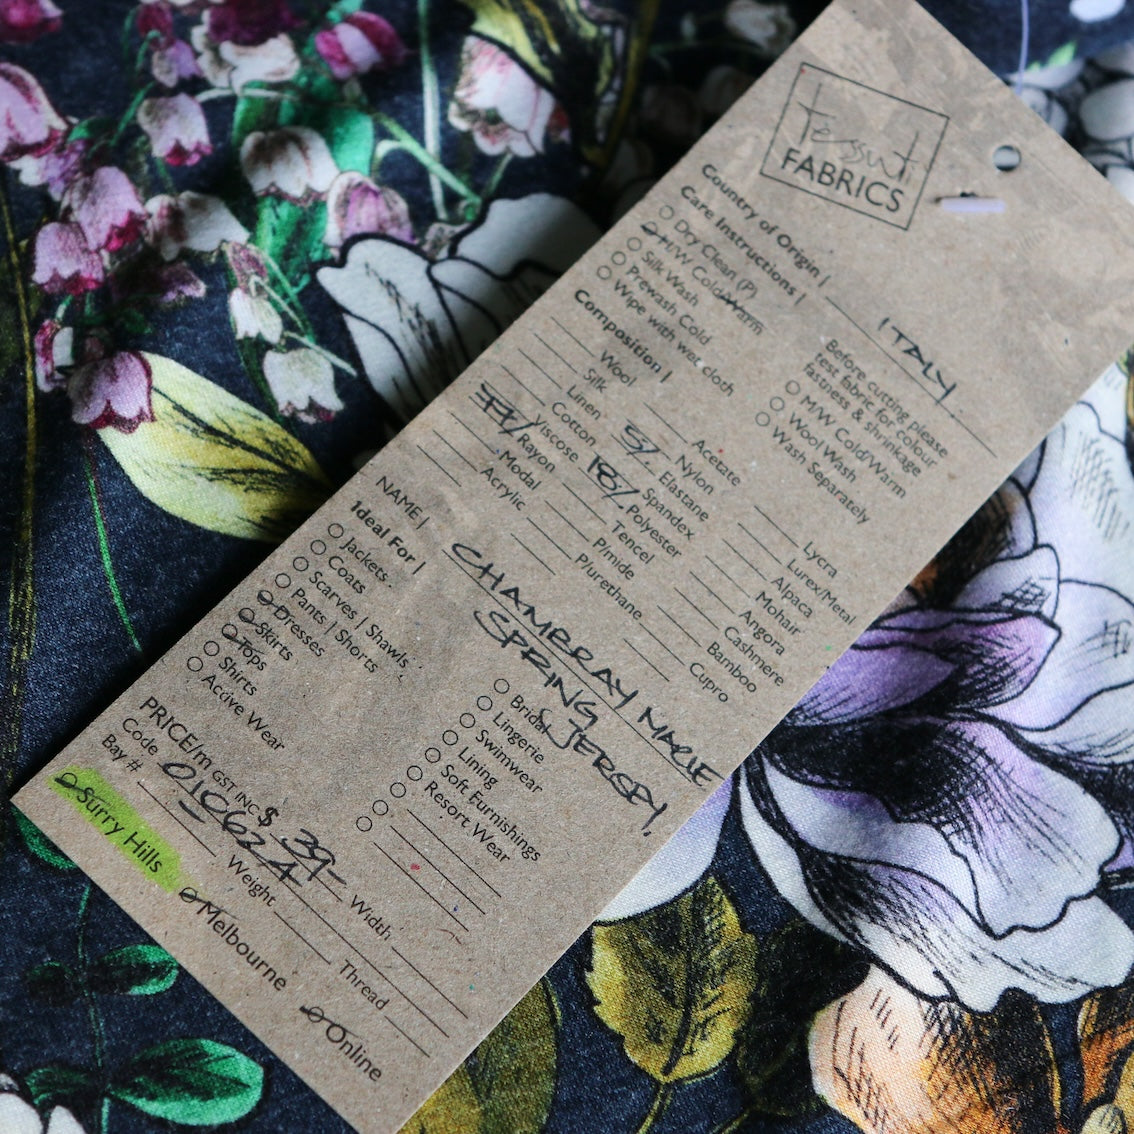 Tessuti
FABRICS
Country of Origin | ITALY
Care Instructions |
Dry Clean (P)
H/W Cold/Warm
Silk Wash
Prewash Cold
Wipe with wet cloth
Before cutting please
test fabric for colour
fastness & shrinkage
M/W Cold/Warm
Wool Wash
Wash Separately
Composition |
Wool
Silk
Linen
Cotton
Viscose
Rayon
Modal
Acrylic
Acetate
Nylon
5% Elastane
Spandex
18% Polyester
Tencel
P/mide
P/urethane
Lycra
Lurex/Metal
Alpaca
Mohair
Angora
Cashmere
Bamboo
Cupro
NAME | CHAMBRAY MACIE
SPRING
JERSEY
Ideal For |
Jackets
Coats
Scarves | Shawls
Pants | Shorts
Dresses
Skirts
Tops
Shirts
Active Wear
Bridal
Lingerie
Swimwear
Lining
Soft Furnishings
Resort Wear
PRICE/m GST INC $ 39-
Code
Bay #
Weight
Width
Thread
Surry Hills
Melbourne
Online